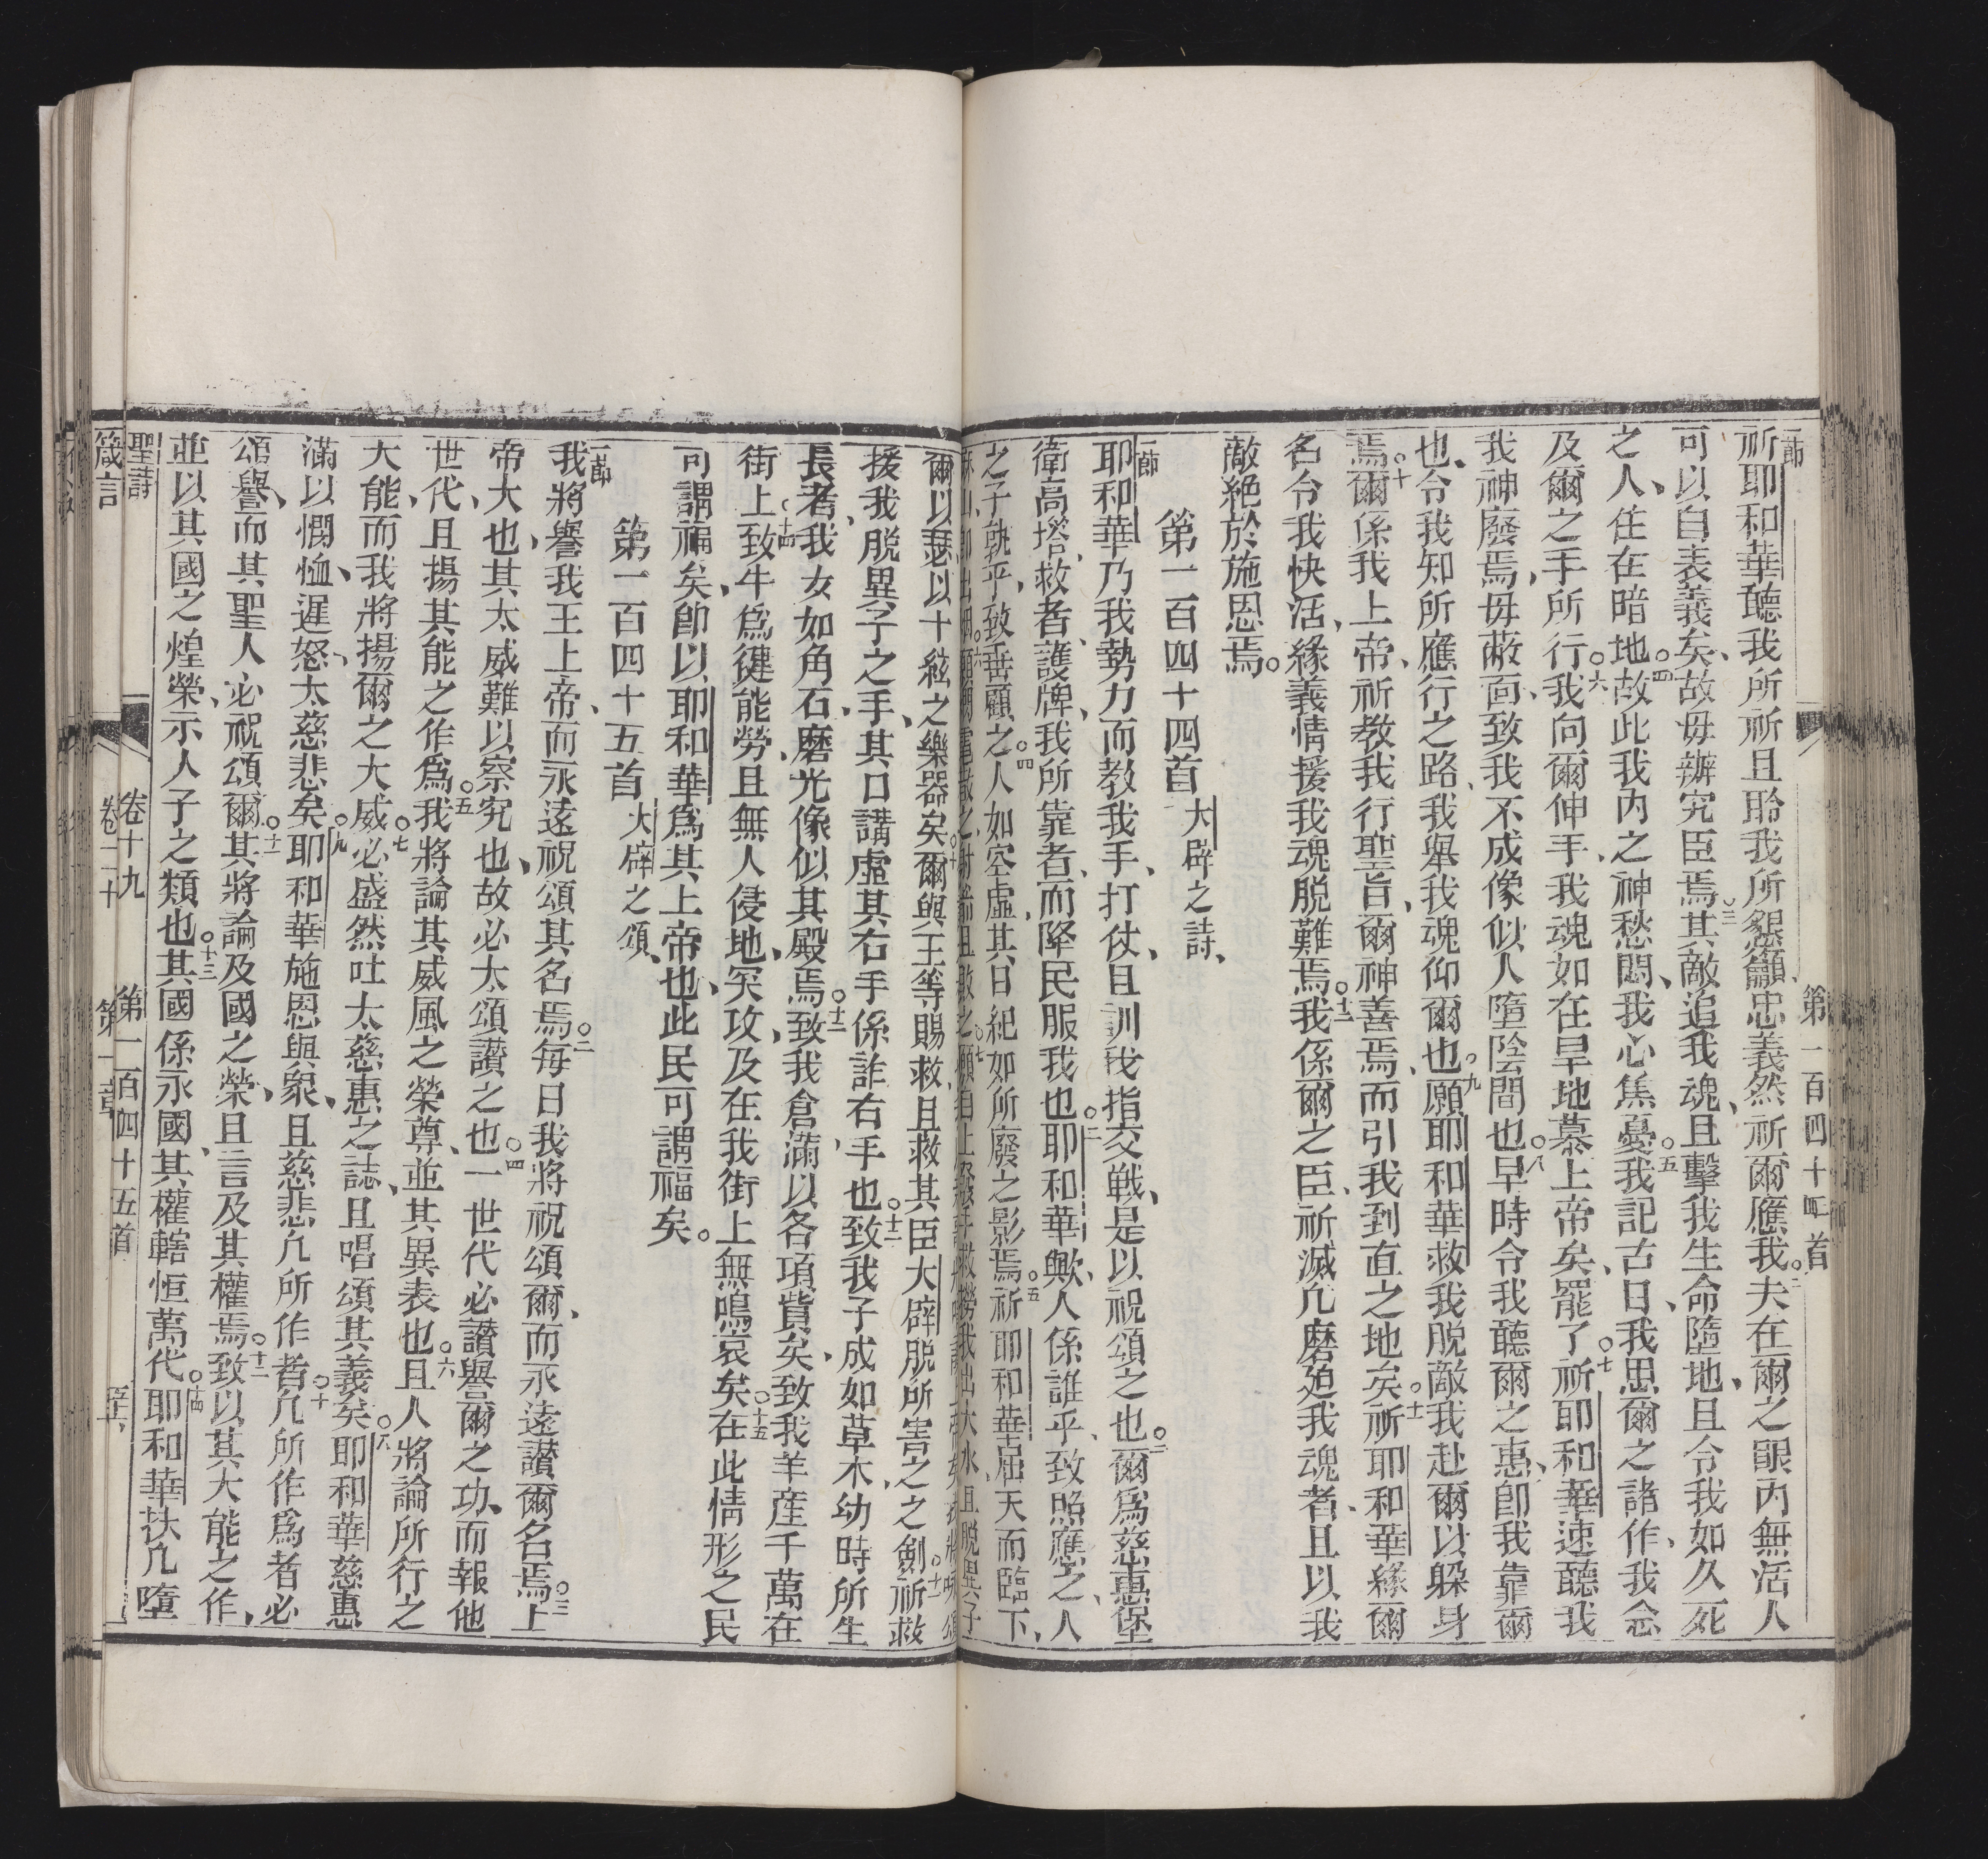 第一百四十四首
一節
祈耶和華聽我所祈且聆我所懇籲忠義然祈爾應我○二夫在爾之眼內無活人
可以自表義矣故毋辦究臣焉○三其敵追我魂且擊我生命墮地且令我如久死
之人住在暗地○四故此我內之神愁悶我心焦憂○五我記古日我思爾之諸作我念
及爾之手所行○六我向爾伸手我魂如在旱地慕上帝矣罷了○七祈耶和華速聽我
我神廢焉毋蔽面致我不成像似人墮陰間也○八早時令我聽爾之惠即我靠爾
也令我知所應行之路我舉我魂仰爾也○九願耶和華救我脫敵我赴爾以躲身
焉○十爾係我上帝祈教我行聖旨爾神善焉而引我到直之地矣○十一祈耶和華緣爾
名令我快活緣義情援我魂脫難焉○十二我係爾之臣祈滅凡磨廹我魂者且以我
敵絕於施恩焉。
第一百四十四首 大辟之詩
一節
耶和華乃我勢力而教我手打仗且訓我指交戰是以祝頌之也○二爾為慈惠堡
衛高塔救者護牌我所靠者而降民服我也○三耶和華歟人係誰乎致照應之人
之子孰乎致垂顧之○四人如空虛其日紀如所廢之影焉○五祈耶和華屈天而臨下
爾以瑟以十絃之樂器矣○十爾與王等賜救且救其臣大辟脫所害之之劍○十一祈救
援我脫異子之手其口講虛其右手係詐右手也○十二致我子成如草木幼時所生
長者我女如角石磨光像似其殿焉○十三致我倉滿以各項貲矣致我羊產千萬在
街上○十四致牛為健能勞且無人侵地突攻及在我街上無鳴哀矣○十五在此情形之民
可謂福矣卽以耶和華為其上帝也此民可謂福矣。
第一百四十五首 大辟之頌
一節
我將譽我王上帝而永遠祝頌其名焉○二每日我將祝頌爾而永遠讚爾名焉○三上
帝大也其太威難以察究也故必太頌讚之也○四一世代必讚譽爾之功而報他
世代且揚其能之作為○五我將論其威風之榮尊並其異表也○六且人將論所行之
大能而我將揚爾之大威○七必盛然吐太慈惠之誌且唱頌其義矣○八耶和華慈惠
滿以憫恤遲怒太慈悲矣○九耶和華施恩與眾且慈悲凡所作者○十凡所作為者必
頌譽而其聖人必祝頌爾○十一其將論及國之榮且言及其權焉○十二致以其大能之作
並以其國之煌榮示人子之類也○十三其國係永國其權轄恒萬代○十四耶和華扶凡墮
聖詩 卷十九 第一百四十五首
箴言 卷二十 第一章